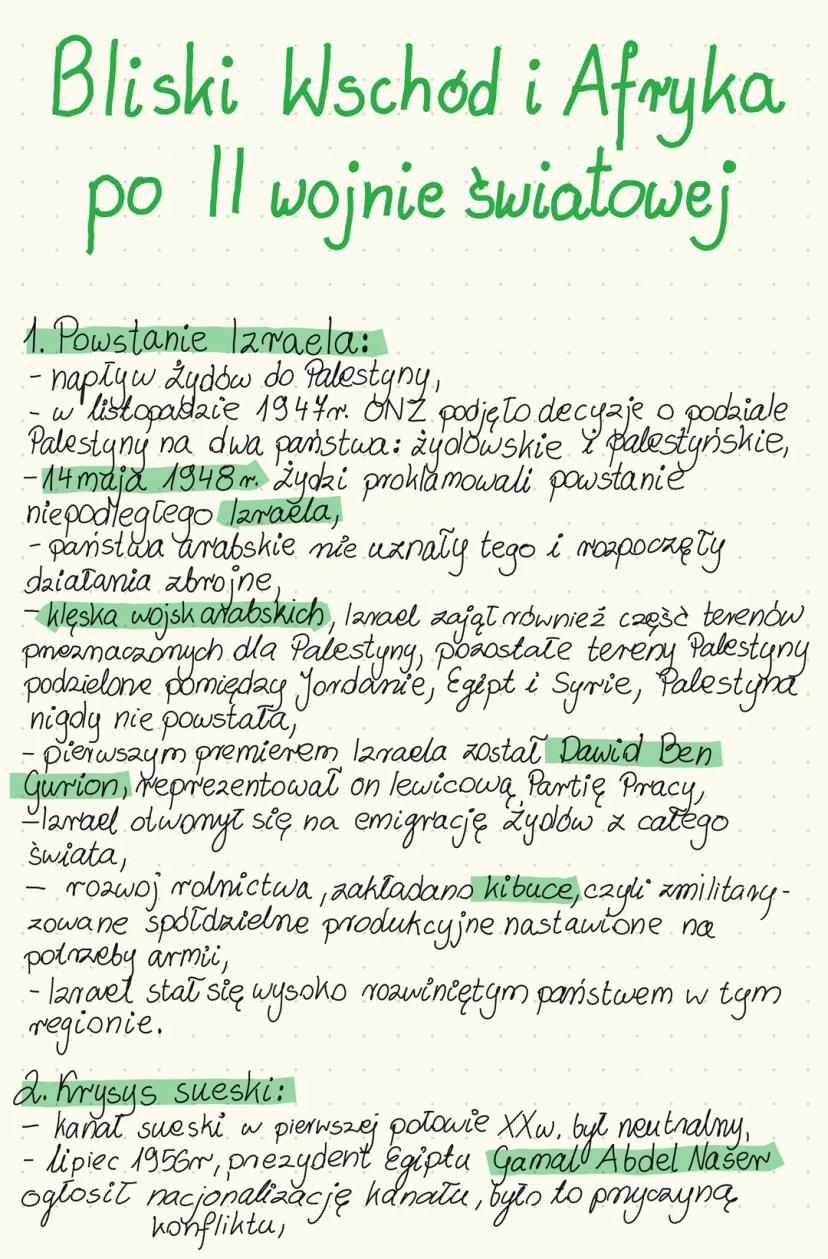 Bliski Wschód i Afryka
po II wojnie światowej
1. Powstanie Izraela:
- napływ Żydów do Palestyny,
- w listopadzie 1947r. ONZ podjęło decyzję o podziale
Palestyny na dwa państwa: żydowskie i palestyńskie,
- 14 maja 1948 r. Żydzi proklamowali powstanie
niepodległego Izraela,
- państwa arabskie nie uznały tego i rozpoczęły
działania zbrojne,
- klęska wojsk arabskich, Izrael zajął również część terenów
przeznaczonych dla Palestyny, pozostałe tereny Palestyny
podzielone pomiędzy Jordanie, Egipt i Syrie, Palestyna
nigdy nie powstała,
- pierwszym premierem Izraela został Dawid Ben
Gurion, reprezentował on lewicową Partię Pracy,
- Izrael otworzył się na emigrację Żydów z całego
świata,
- rozwój rolnictwa, zakładano kibuce, czyli zmilitary-
zowane spółdzielne produkcyjne nastawione na
potrzeby armii,
- Izrael stał się wysoko rozwiniętym państwem w tym
regionie.
2. Krysys sueski:
- kanał sueski w pierwszej połowie XXw. był neutralny,
- lipiec 1956r, prezydent Egiptu Gamal Abdel Naser
ogłosił nacjonalizację kanału, było to przyczyną
konfliktu,